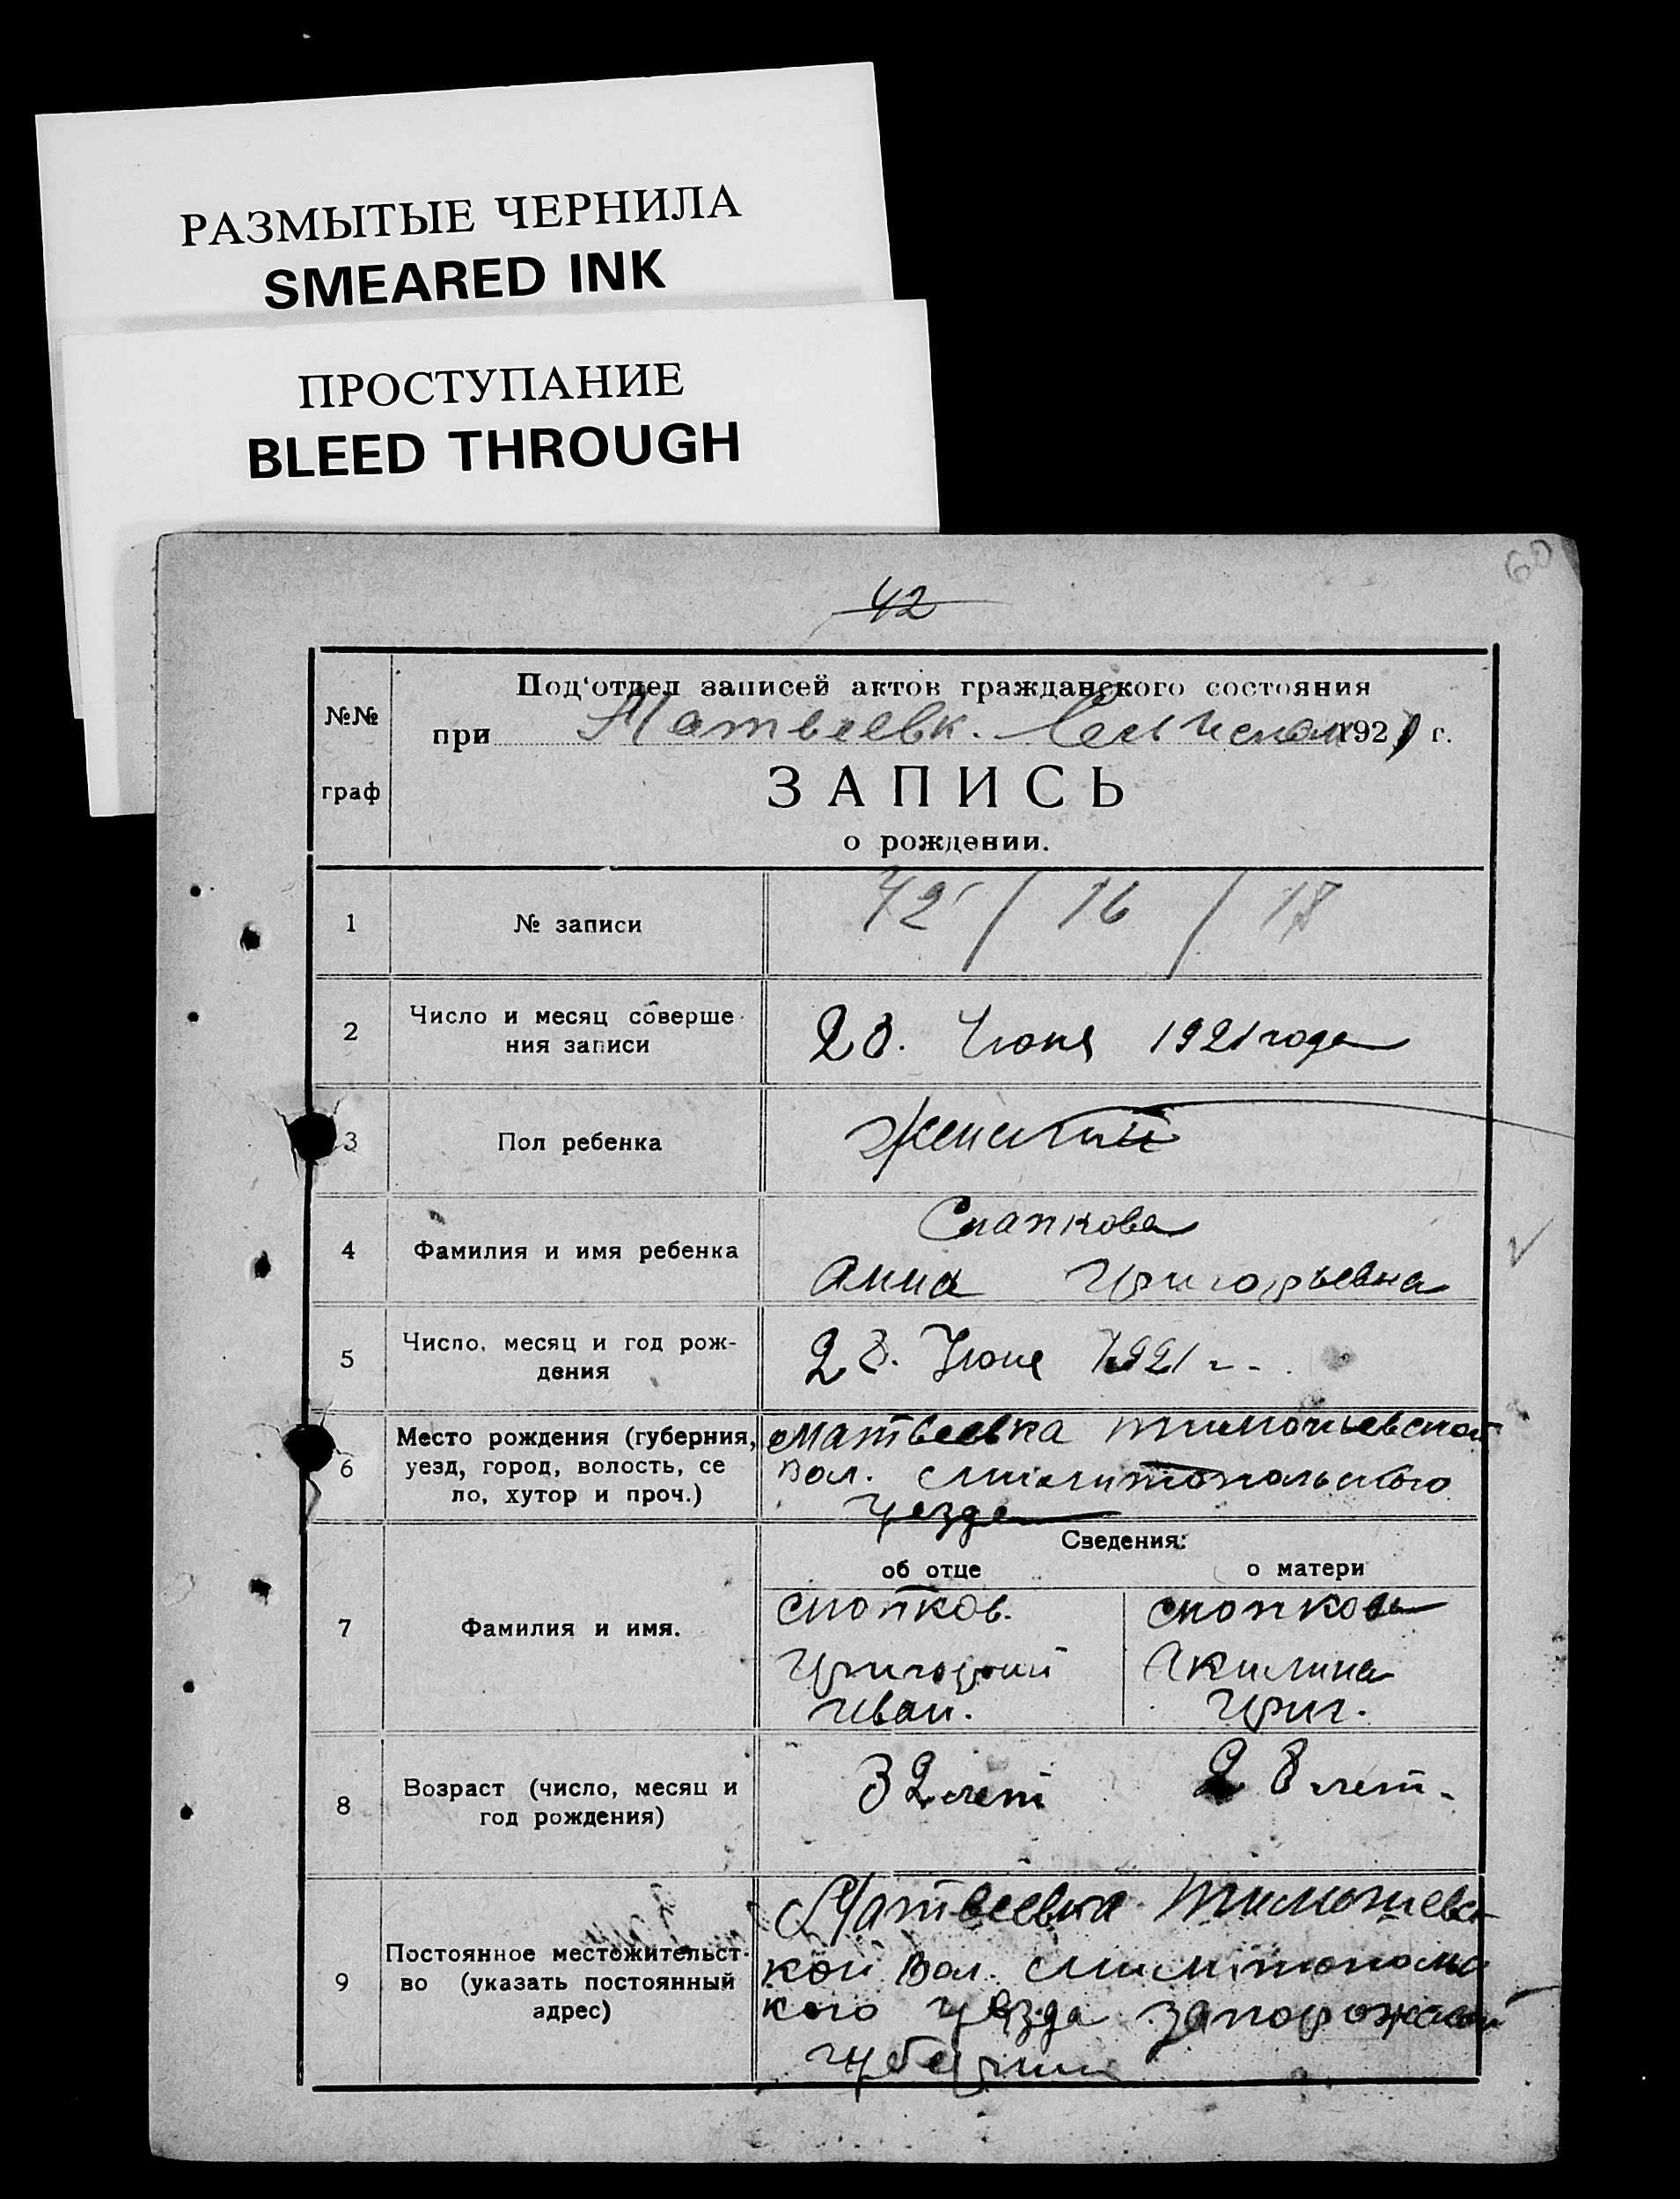 РАЗМЫТЫЕ ЧЕРНИЛА
SMEARED INK
ПРОСТУПАНИЕ
BLEED THROUGH
60
42
№№ граф
Под‘отдел записей актов гражданского состояния
при Матвеевк. 1921 г.
ЗАПИСЬ
о рождении.
1 № записи 42 / 16 / 18
2 Число и месяц соверше-
ния записи
28. Июня 1921 года
3 Пол ребенка Женский
4 Фамилия и имя ребенка
Снапкова
Анна Григорьевна
5 Число, месяц и год рож-
дения
23. Июня 1921 г.
6 Место рождения (губерния,
уезд, город, волость, се
ло, хутор и проч.)
Матвеевка
Вол. Милитопольского
Уезда
Сведения:
об отце о матери
7 Фамилия и имя.
снопков. снопкова
Григорий Акилина
Иван. Григ.
8 Возраст (число, месяц и
год рождения)
32 лет 28 лет.
9 Постоянное местожительст-
во (указать постоянный
адрес)
Матвеевка
кой Вол. Милитопольс
кого уезда запорожской
губернии